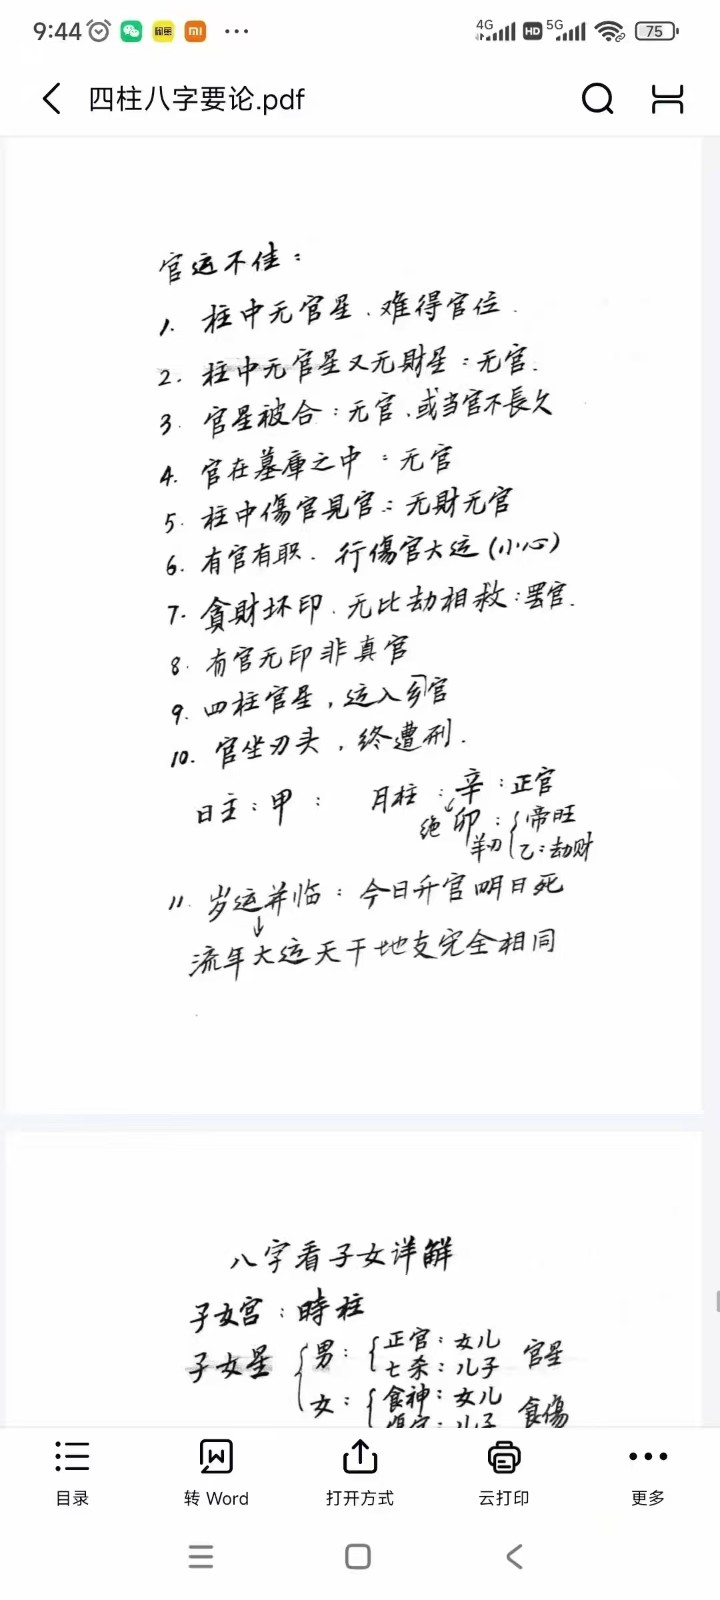 9:44
4G HD 5G 75
四柱八字要论.pdf
官运不佳：
1. 柱中无官星．难得官位．
2. 柱中无官星又无財星：无官．
3. 官星被合：无官．或当官不長久
4. 官在墓庫之中：无官
5. 柱中傷官見官：无財无官
6. 有官有职．行傷官大运(小心)
7. 貪財坏印．无比劫相救：罢官．
8. 有官无印非真官
9. 四柱官星，运入官
10. 官坐刃头，终遭刑．
日主：甲： 月柱：辛：正官
绝 卯：帝旺
羊刃 乙：劫财
11. 岁运并临：今日升官明日死
流年大运天干地支完全相同
八字看子女详解
子女宫：時柱
子女星 男：正官：女儿 官星
七杀：儿子
女：食神：女儿 食傷
傷官：儿子
目录 转 Word 打开方式 云打印 更多